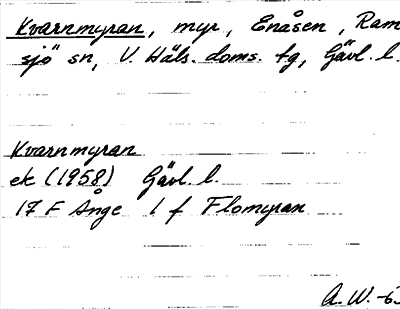 Kvarnmyran, myr, Enåsen, Ram
sjö sn, V. Häls. doms. tg, Gävl. l.
Kvarnmyran
ek (1958) Gävl. l.
17 F Ånge l f Flomyran
A.W. -6